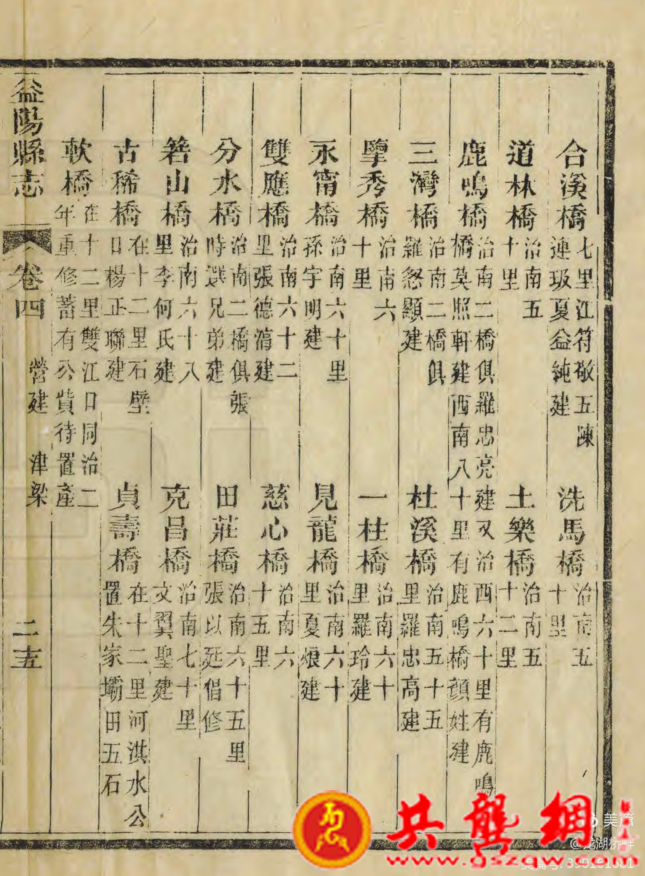 合溪橋 七里江符敬五陳連珱夏益純建 洗馬橋 治南五十里
道林橋 治南五十里 土樂橋 治南五十二里
鹿鳴橋 治南二橋俱羅忠亮建又治西六十里有鹿鳴橋莫照軒建西南八十里有鹿鳴橋顔姓建
三灣橋 治南二橋俱羅怒顯建 杜溪橋 治南五十五里羅忠高建
擘秀橋 治南六十里 一柱橋 治南六十里羅玲建
永甯橋 治南六十里孫宇明建 見龍橋 治南六十里夏烺建
雙應橋 治南六十二里張德蕅建 慈心橋 治南六十五里
分水橋 治南二橋俱張時選兄弟建 田莊橋 治南六十五里張以廷倡修
箬山橋 治南六十八里李何氏建 克昌橋 治南七十里文翼聖建
古稀橋 在十二里石壁口楊正聯建 貞壽橋 在十二里河淇水公置朱家壩田五石
軟橋 在十二里雙江口同治二年重修蓄有公貲待置產
益陽縣志 卷四 營建 津梁 二五
共龔網
www.gszqw.com